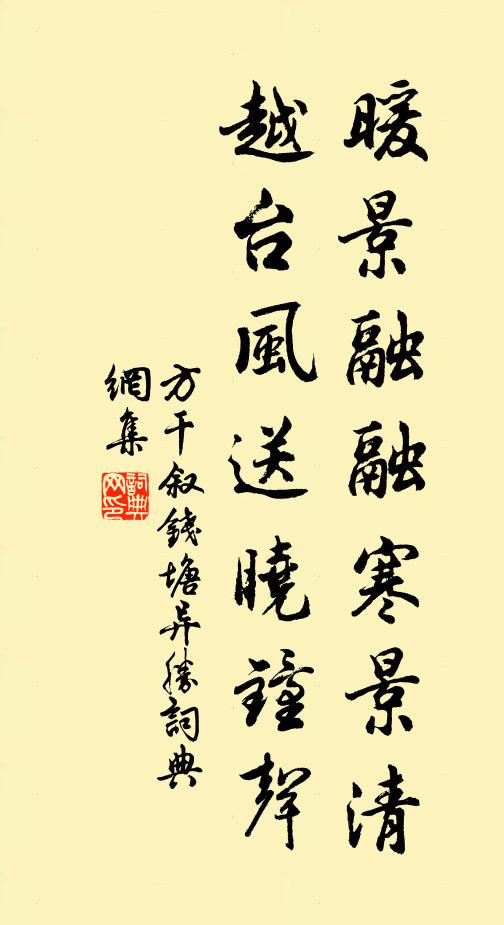 暖景融融寒景清
越台風送曉鐘聲
方干叙錢塘异勝詞典
網集
詞典
网印